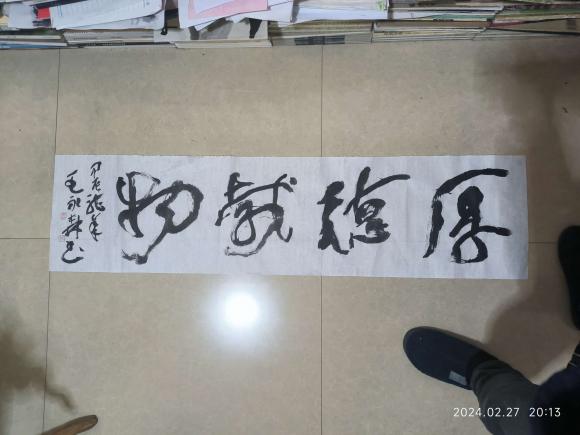 厚德載物
甲辰龍年
2024.02.27 20:13